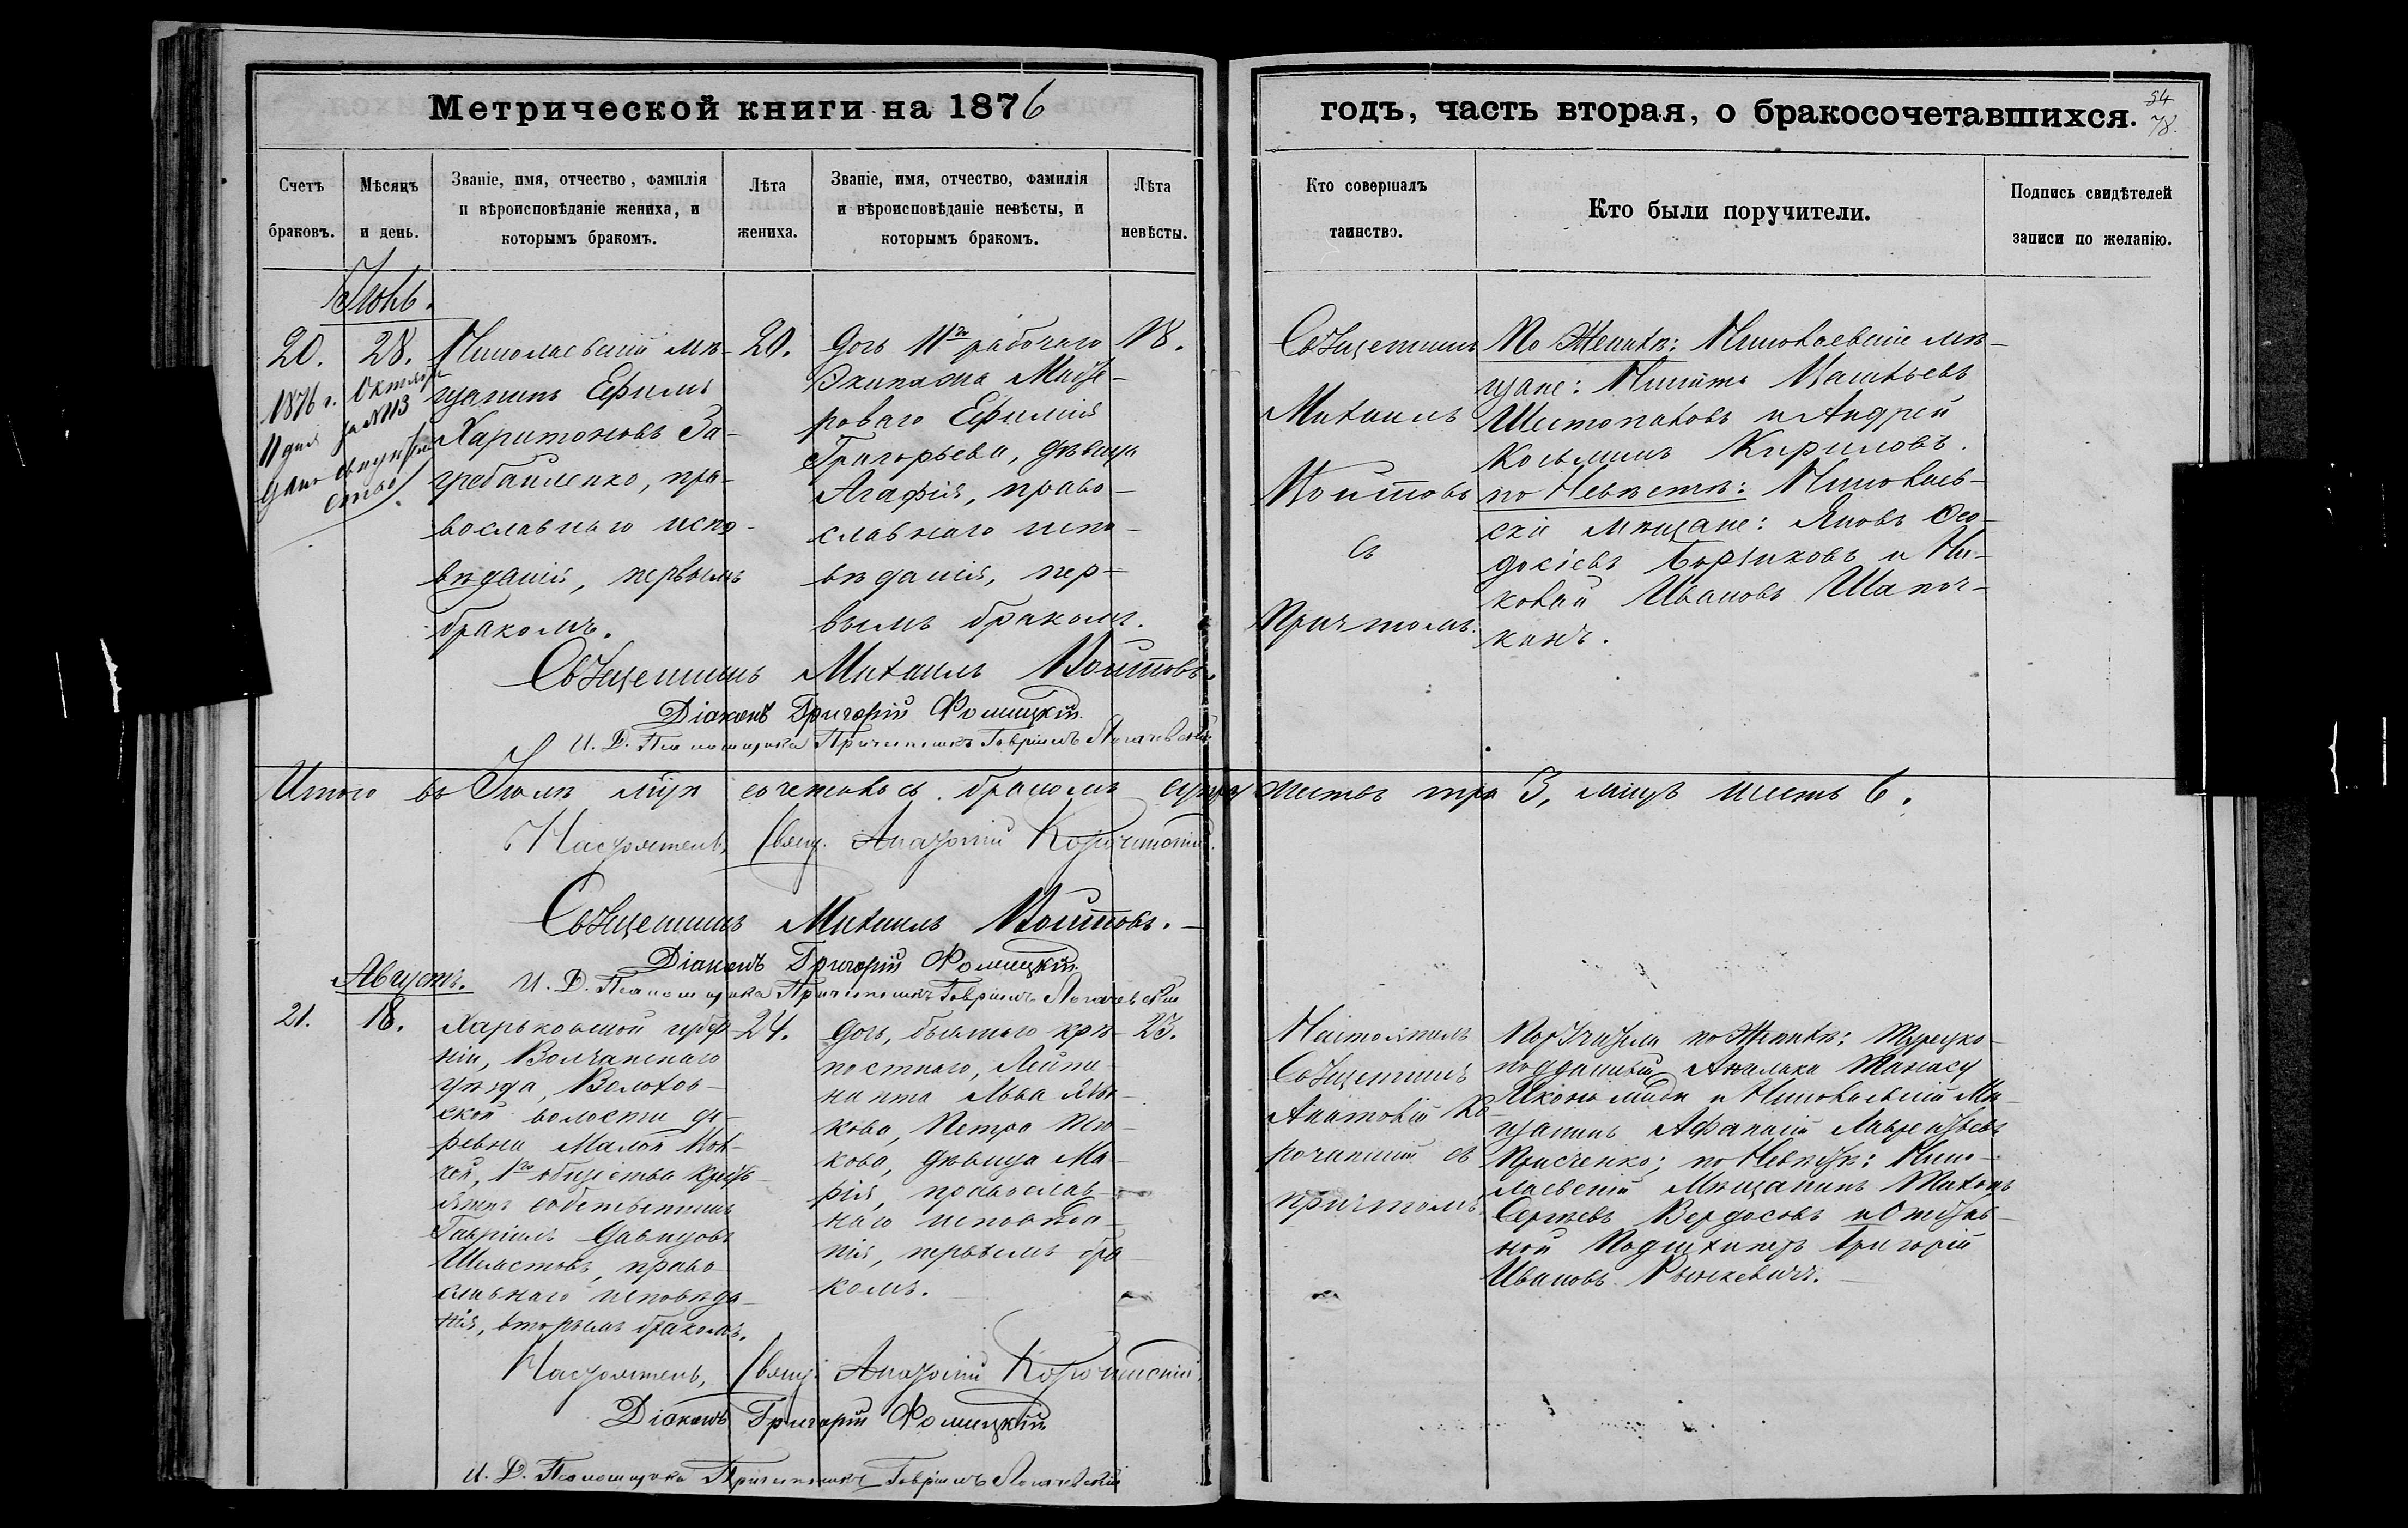 Метрической книги на 1876
годъ, часть вторая, о бракосочетавшихся.
54
78.
Счетъ браковъ.
Мѣсяцъ и день.
Званіе, имя, отчество, фамилія
и вѣроисповѣданіе жениха, и
которымъ бракомъ.
Лѣта жениха.
Званіе, имя, отчество, фамилія
и вѣроисповѣданіе невѣсты, и
которымъ бракомъ.
Лѣта невѣсты.
Кто совершалъ
таинство.
Кто были поручители.
Подпись свидѣтелей
записи по желанію.
Іюль.
20.
28.
1876 г. Октября
11 дня за №113
дано
Николаевскій мѣ-
щанинъ Ефимъ
Харитоновъ За-
гребайленко, пра-
вославнаго испо-
вѣданія, первымъ
бракомъ.
20.
Дочь 11го рабочаго
Экипажа
Ефимія
Григорьева, дѣвица
Агафія, право-
славнаго испо-
вѣданія, пер-
вымъ бракомъ.
18.
Священникъ
Михаилъ
Войтовъ
съ
Причтомъ.
По Женихѣ: Николаевскіе мѣ-
щане: Никита
Шестопаловъ и Андрей
Козьминъ Кириловъ.
по Невѣстѣ: Николаев-
скіе мѣщане: Яковъ Ѳео-
досіевъ и Ни-
колай Ивановъ Шапоч-
кинъ.
Священникъ Михаилъ Войтовъ.
Діаконъ Григорій Фомицкій
И. Д. Псаломщика Причетникъ Гавріилъ
Итого въ Іюлѣ мѣсѣ сочеталось бракомъ супружествъ три 3, лицъ шесть 6.
Настоятель, Свящ. Анатолій Корочанскій.
Священникъ Михаилъ Войтовъ.
Діаконъ Григорій Фомицкій
И. Д. Псаломщика Причетникъ Гавріилъ
Августъ.
21.
18.
Харьковской губер-
ніи, Волчанскаго
уѣзда, Волохов-
ской волости де-
ревни Малой Вол-
чей, 1го общества кресть-
янинъ собственникъ
Гавріилъ Давидовъ
православнаго исповѣда-
нія, вторымъ бракомъ.
24.
Дочь, бывшаго крѣ-
постнаго, Лейте-
нанта Льва
Петра
дѣвица Ма-
рія, православ-
наго исповѣда-
нія, первымъ бра-
комъ.
23.
Настоятель
Священникъ
Анатолій Ко-
рочанскій съ
причтомъ.
Поручители по Женихѣ: Турецко-
подданный
и Николаевскій Мѣ-
щанинъ Афанасій Лаврентьевъ
по Невѣстѣ: Нико-
лаевскій Мѣщанинъ Тихонъ
Сергѣевъ и Отстав-
ной Григорій
Ивановъ
Настоятель, Свящ. Анатолій Корочанскій.
Діаконъ Григорій Фомицкій
И. Д. Псаломщика Причетникъ Гавріилъ